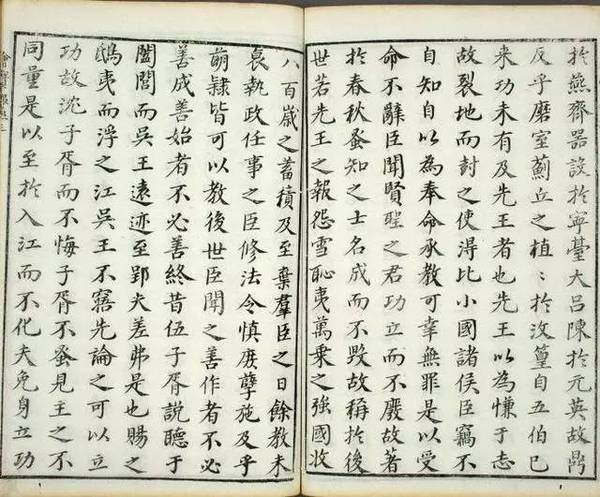 於燕齊器設於寧臺大呂陳於元英故鼎
反乎磨室薊丘之植〻於汶篁自五伯已
来功未有及先王者也先王以為慊于志
故裂地而封之使得比小國諸侯臣竊不
自知自以為奉命承教可幸無罪是以受
命不辭臣聞賢聖之君功立而不廢故著
於春秋蚤知之士名成而不毀故稱於後
世若先王之報怨雪恥夷萬乗之強國收
八百歲之蓄積及至棄羣臣之日餘教未
衰執政任事之臣修法令慎庶孽施及乎
萌隷皆可以教後世臣聞之善作者不必
善成善始者不必善終昔伍子胥說聽于
闔閭而吳王遠迹至郢夫差弗是也賜之
鴟夷而浮之江吳王不寤先論之可以立
功故沈子胥而不悔子胥不蚤見主之不
同量是以至於入江而不化夫免身立功